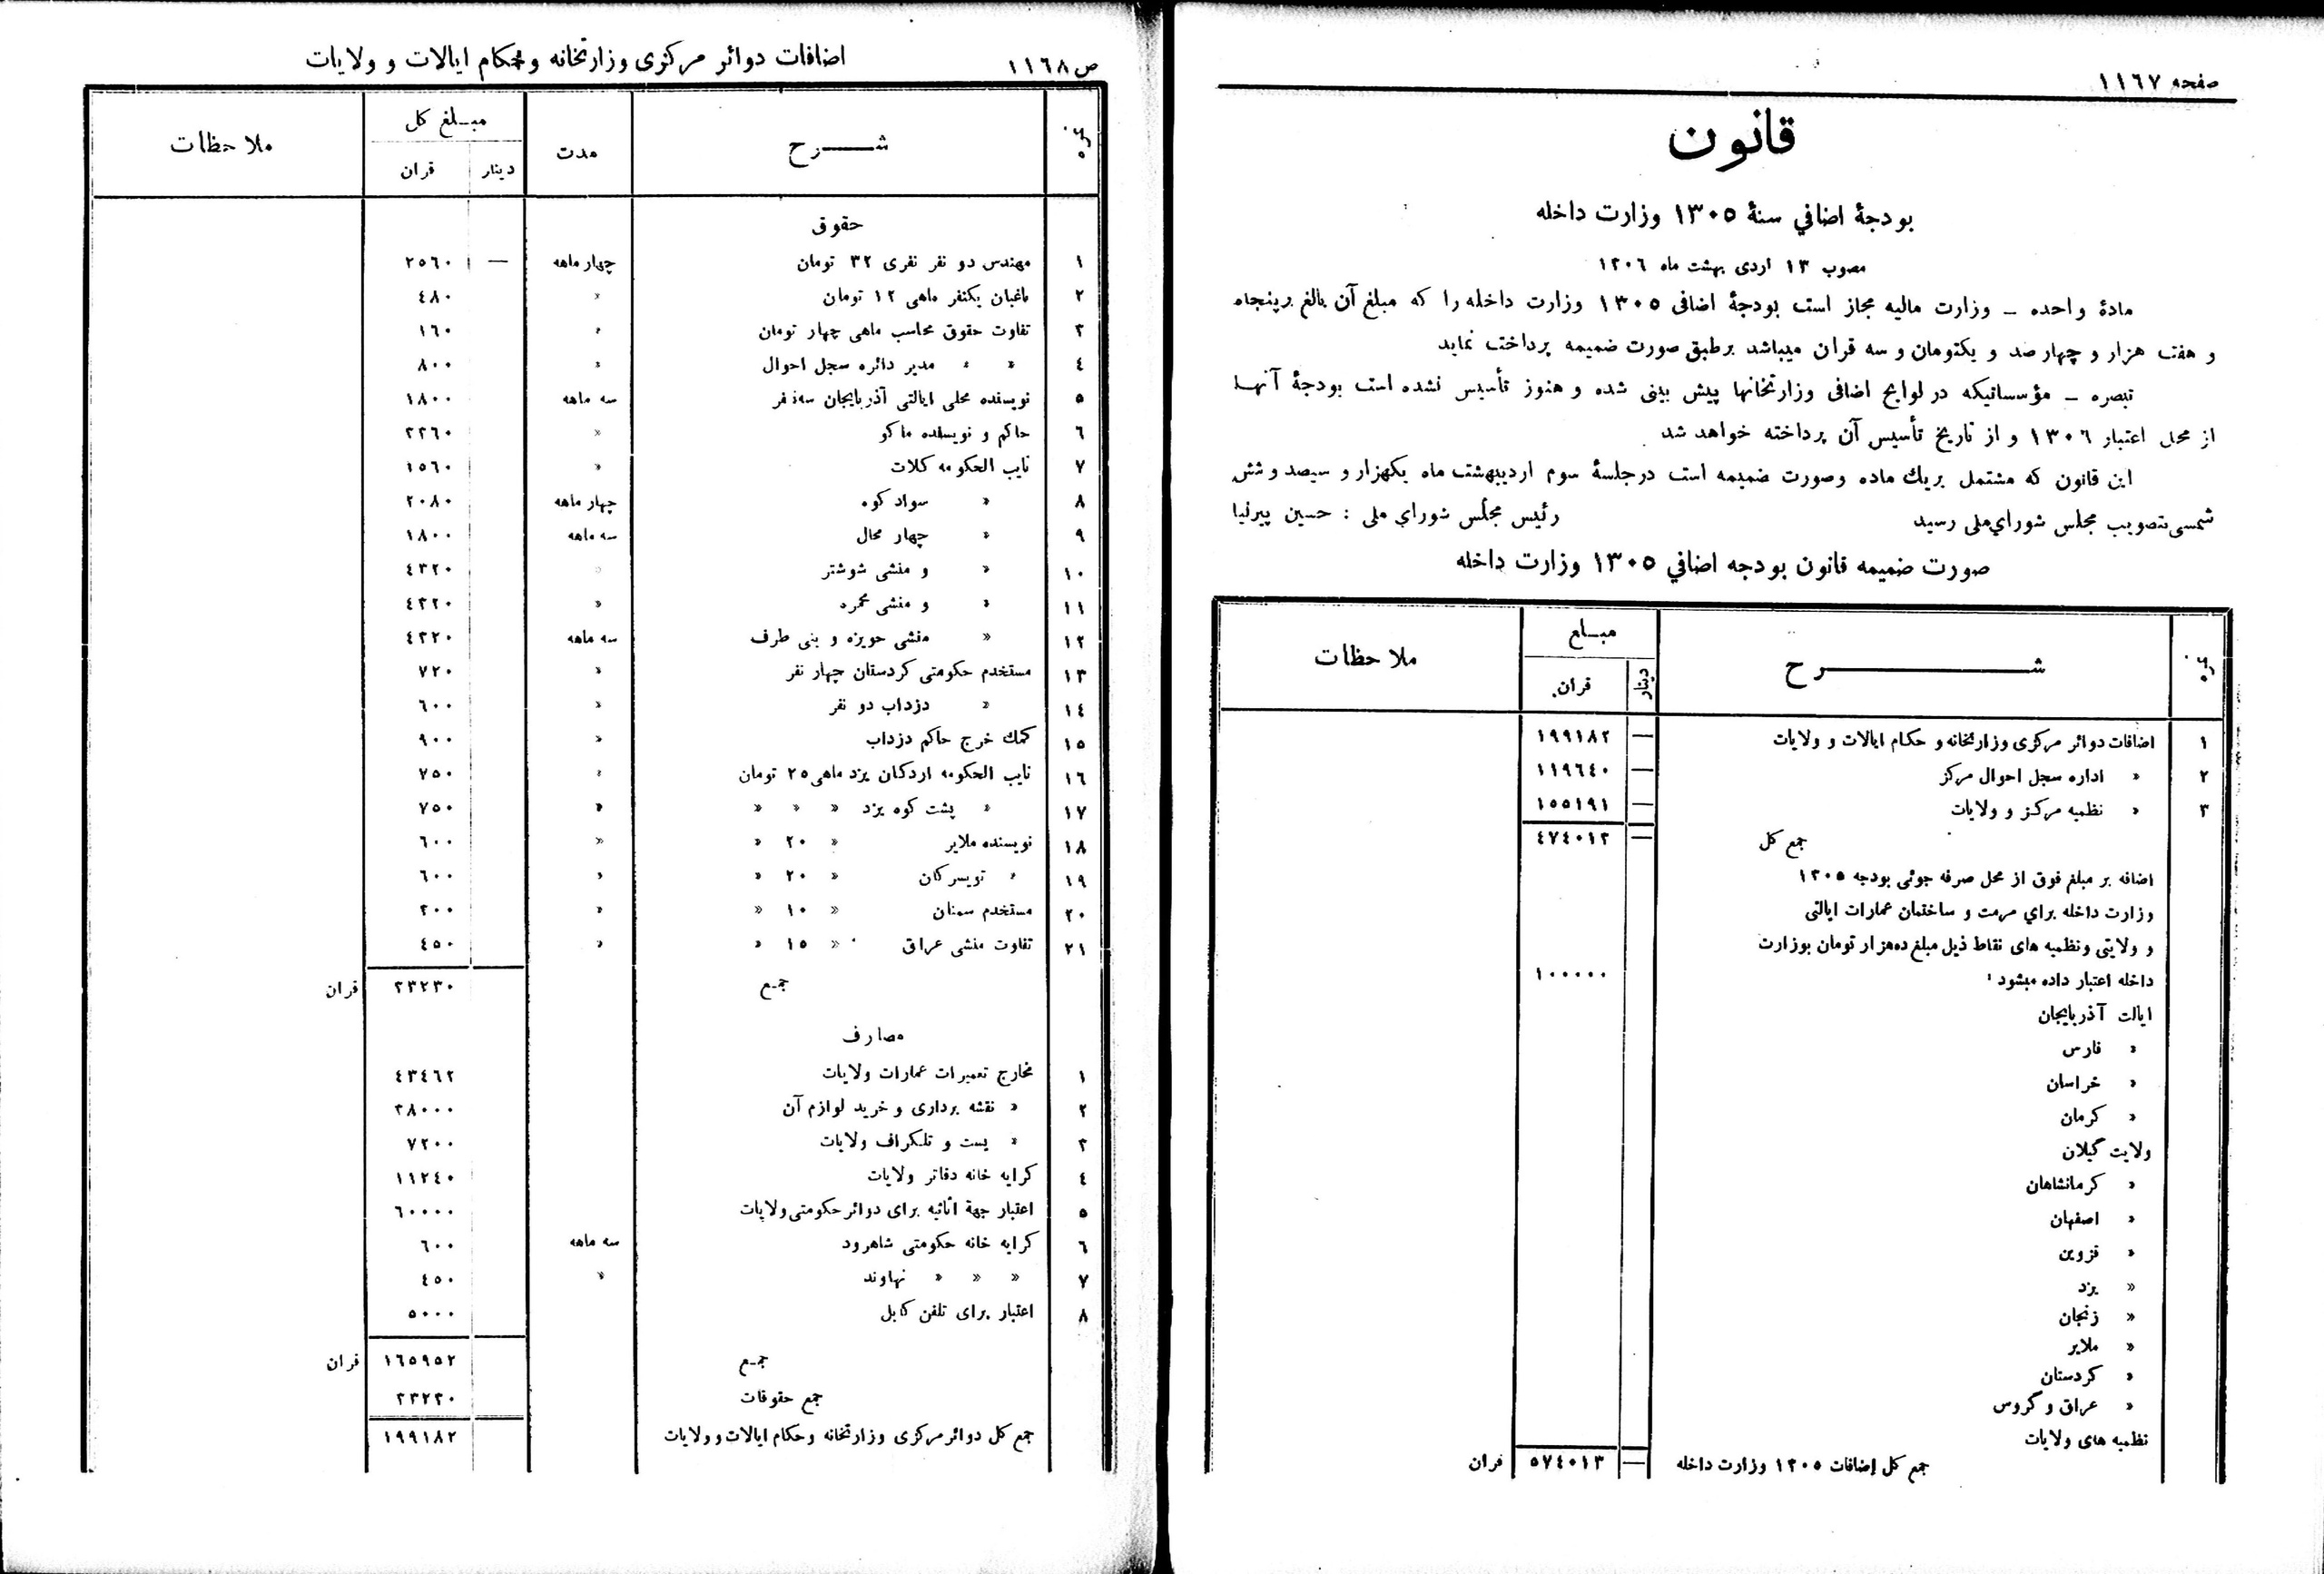 صفحه ١١٦٧
قانون
بودجهٔ اضافي سنهٔ ١٣٠٥ وزارت داخله
مصوب ١٣ اردی بهشت ماه ١٣٠٦
مادهٔ واحده ـ وزارت مالیه مجاز است بودجهٔ اضافی ١٣٠٥ وزارت داخله را که مبلغ آن بالغ برپنجاه
و هفت هزار و چهارصد و یکتومان و سه قران میباشد برطبق صورت ضمیمه پرداخت نماید
تبصره ـ مؤسساتیکه در لوایح اضافی وزارتخانها پیش بینی شده و هنوز تأسیس نشده است بودجهٔ آنهـا
از محل اعتبار ١٣٠٦ و از تاریخ تأسیس آن پرداخته خواهد شد
این قانون که مشتمل بریك ماده وصورت ضمیمه است درجلسهٔ سوم اردیبهشت ماه یکهزار و سیصد و شش
شمسی بتصویب مجلس شورای ملی رسید رئیس مجلس شورای ملی : حسین پیرنیا
صورت ضمیمه قانون بودجه اضافي ١٣٠٥ وزارت داخله
نمره شــرح مبـلغ ملاحظات
دینار قران
١ اضافات دوائر مرکزی وزارتخانه و حکام ایالات و ولایات — ١٩٩١٨٢
٢ « اداره سجل احوال مرکز — ١١٩٦٤٠
٣ « نظمیه مرکز و ولایات — ١٥٥١٩١
جمع کل — ٤٧٤٠١٣
اضافه بر مبلغ فوق از محل صرفه جوئی بودجه ١٣٠٥
وزارت داخله برای مرمت و ساختمان عمارات ایالتی
و ولایتی ونظمیه های نقاط ذیل مبلغ ده هزار تومان بوزارت
داخله اعتبار داده میشود : ١٠٠٠٠٠
ایالت آذربایجان
« فارس
« خراسان
« کرمان
ولایت گیلان
« کرمانشاهان
« اصفهان
« قزوین
« یزد
« زنجان
« ملایر
« کردستان
« عراق و گروس
نظمیه های ولایات
جمع کل اضافات ١٣٠٥ وزارت داخله — ٥٧٤٠١٣ قران
ص ١١٦٨ اضافات دوائر مرکزی وزارتخانه و حکام ایالات و ولایات
نمره شــرح مدت مبـلغ کل ملاحظات
دینار قران
حقوق
١ مهندس دو نفر نفری ٣٢ تومان چهار ماهه — ٢٥٦٠
٢ باغبان یکنفر ماهی ١٢ تومان « ٤٨٠
٣ تفاوت حقوق محاسب ماهی چهار تومان « ١٦٠
٤ « « مدیر دائره سجل احوال « ٨٠٠
٥ نویسنده محلی ایالتی آذربایجان سه نفر سه ماهه ١٨٠٠
٦ حاکم و نویسنده ماکو « ٣٣٦٠
٧ نایب الحکومه کلات « ١٥٦٠
٨ « سواد کوه چهار ماهه ٢٠٨٠
٩ « چهار محال سه ماهه ١٨٠٠
١٠ « و منشی شوشتر « ٤٣٢٠
١١ « و منشی محمره « ٤٣٢٠
١٢ « منشی حویزه و بنی طرف سه ماهه ٤٣٢٠
١٣ مستخدم حکومتی کردستان چهار نفر « ٧٢٠
١٤ « دزداب دو نفر « ٦٠٠
١٥ کمك خرج حاکم دزداب « ٩٠٠
١٦ نایب الحکومه اردکان یزد ماهی ٢٥ تومان « ٧٥٠
١٧ « پشت کوه یزد « « « « ٧٥٠
١٨ نویسنده ملایر « ٢٠ « « ٦٠٠
١٩ « تویسرکان « ٢٠ « « ٦٠٠
٢٠ مستخدم سمنان « ١٠ « « ٣٠٠
٢١ تفاوت منشی عراق « ١٥ « « ٤٥٠
جمـع ٣٣٢٣٠ قران
مصارف
١ مخارج تعمیرات عمارات ولایات ٤٣٤٦٢
٢ « نقشه برداری و خرید لوازم آن ٣٨٠٠٠
٣ « پست و تلگراف ولایات ٧٢٠٠
٤ کرایه خانه دفاتر ولایات ١١٢٤٠
٥ اعتبار جهة اثاثیه برای دوائر حکومتی ولایات ٦٠٠٠٠
٦ کرایه خانه حکومتی شاهرود سه ماهه ٦٠٠
٧ « « « نهاوند « ٤٥٠
٨ اعتبار برای تلفن کابل ٥٠٠٠
جمـع ١٦٥٩٥٢ قران
جمع حقوقات ٣٣٢٣٠
جمع کل دوائر مرکزی وزارتخانه و حکام ایالات و ولایات ١٩٩١٨٢